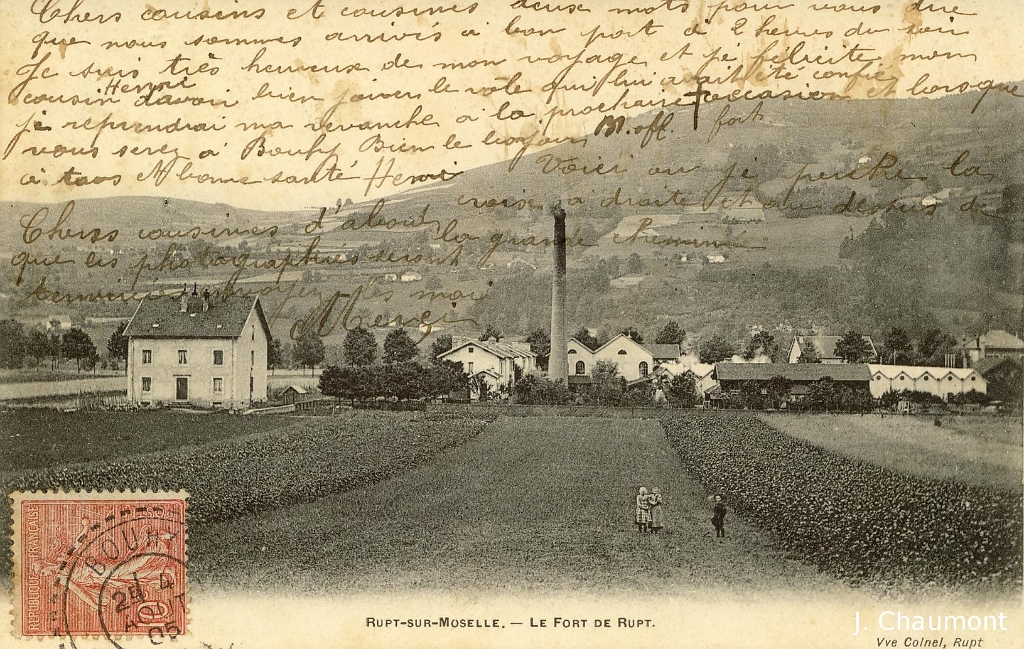 Chers cousins et cousines deux mots pour vous dire
que nous sommes arrivés à bon port à 2 heures du soir
Je suis très heureuse de mon voyage et je félicite mon
cousin Henri d'avoir bien jouer le rôle qui lui avait été confié
je reprendrai ma revanche à la prochaine occasion et lorsque
vous serez à Bouhy Bien le bonjour M. off. fort
à tous bonne santé Henri
Voici ou je perche la
croix à droite et au dessus de
la grande cheminée
Chers cousines d'abord
que les photographies seront
terminées
REPUBLIQUE FRANÇAISE
BOUHY
24
4
05
10
RUPT-SUR-MOSELLE. — LE FORT DE RUPT.
J. Chaumont
Vve Colnel, Rupt